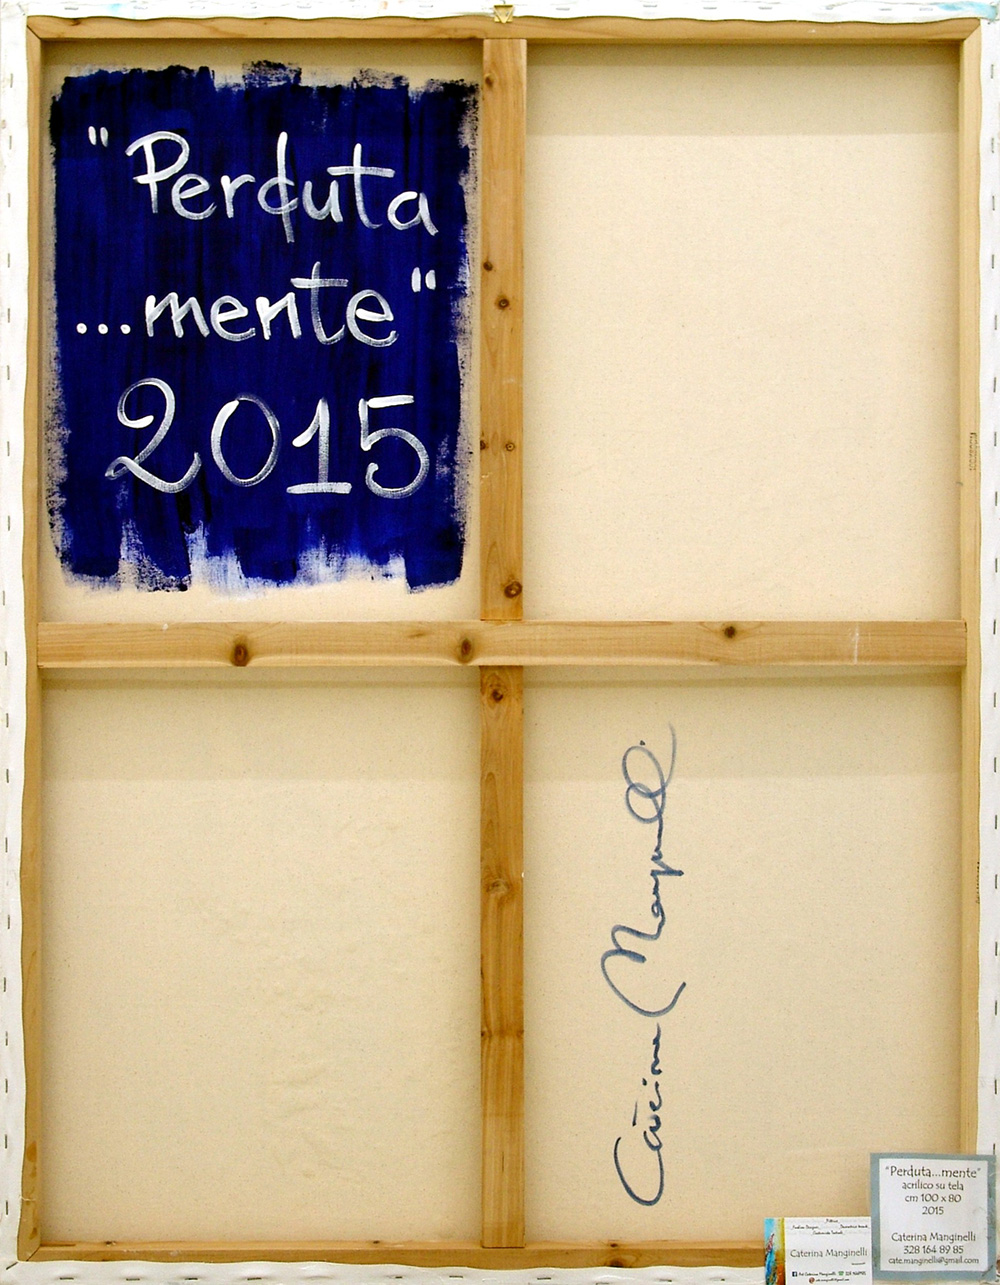 "Perduta
...mente"
2015
Caterina Manginelli
"Perduta...mente"
acrilico su tela
cm 100 x 80
2015
Caterina Manginelli
328 164 89 85
cate.manginelli@gmail.com
Caterina Manginelli